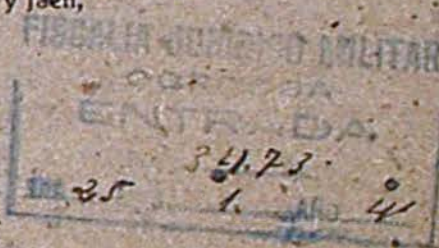 y Jaen,
FISCALIA JURIDICO MILITAR
CORDOBA
ENTRADA
3473.
DIA 25 1. AÑO 41